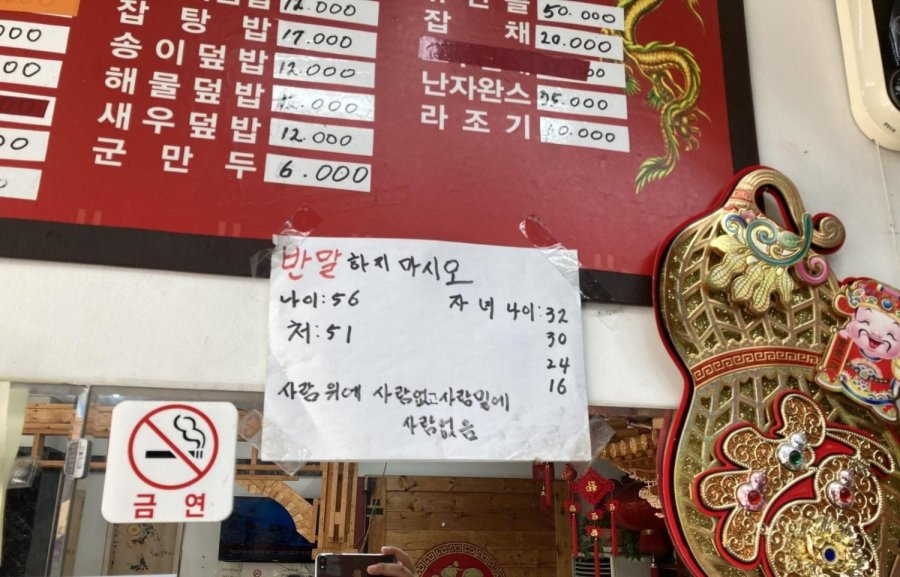 12.000
잡탕밥 17.000
송이덮밥 12.000
해물덮밥 000
새우덮밥 12.000
군만두 6.000
50.000
잡채 20.000
난자완스 35.000
라조기 0.000
반말 하지 마시오
나이:56 자녀 나이:32
처:51 30
24
16
사람 위에 사람없고 사람 밑에
사람없음
금연
福